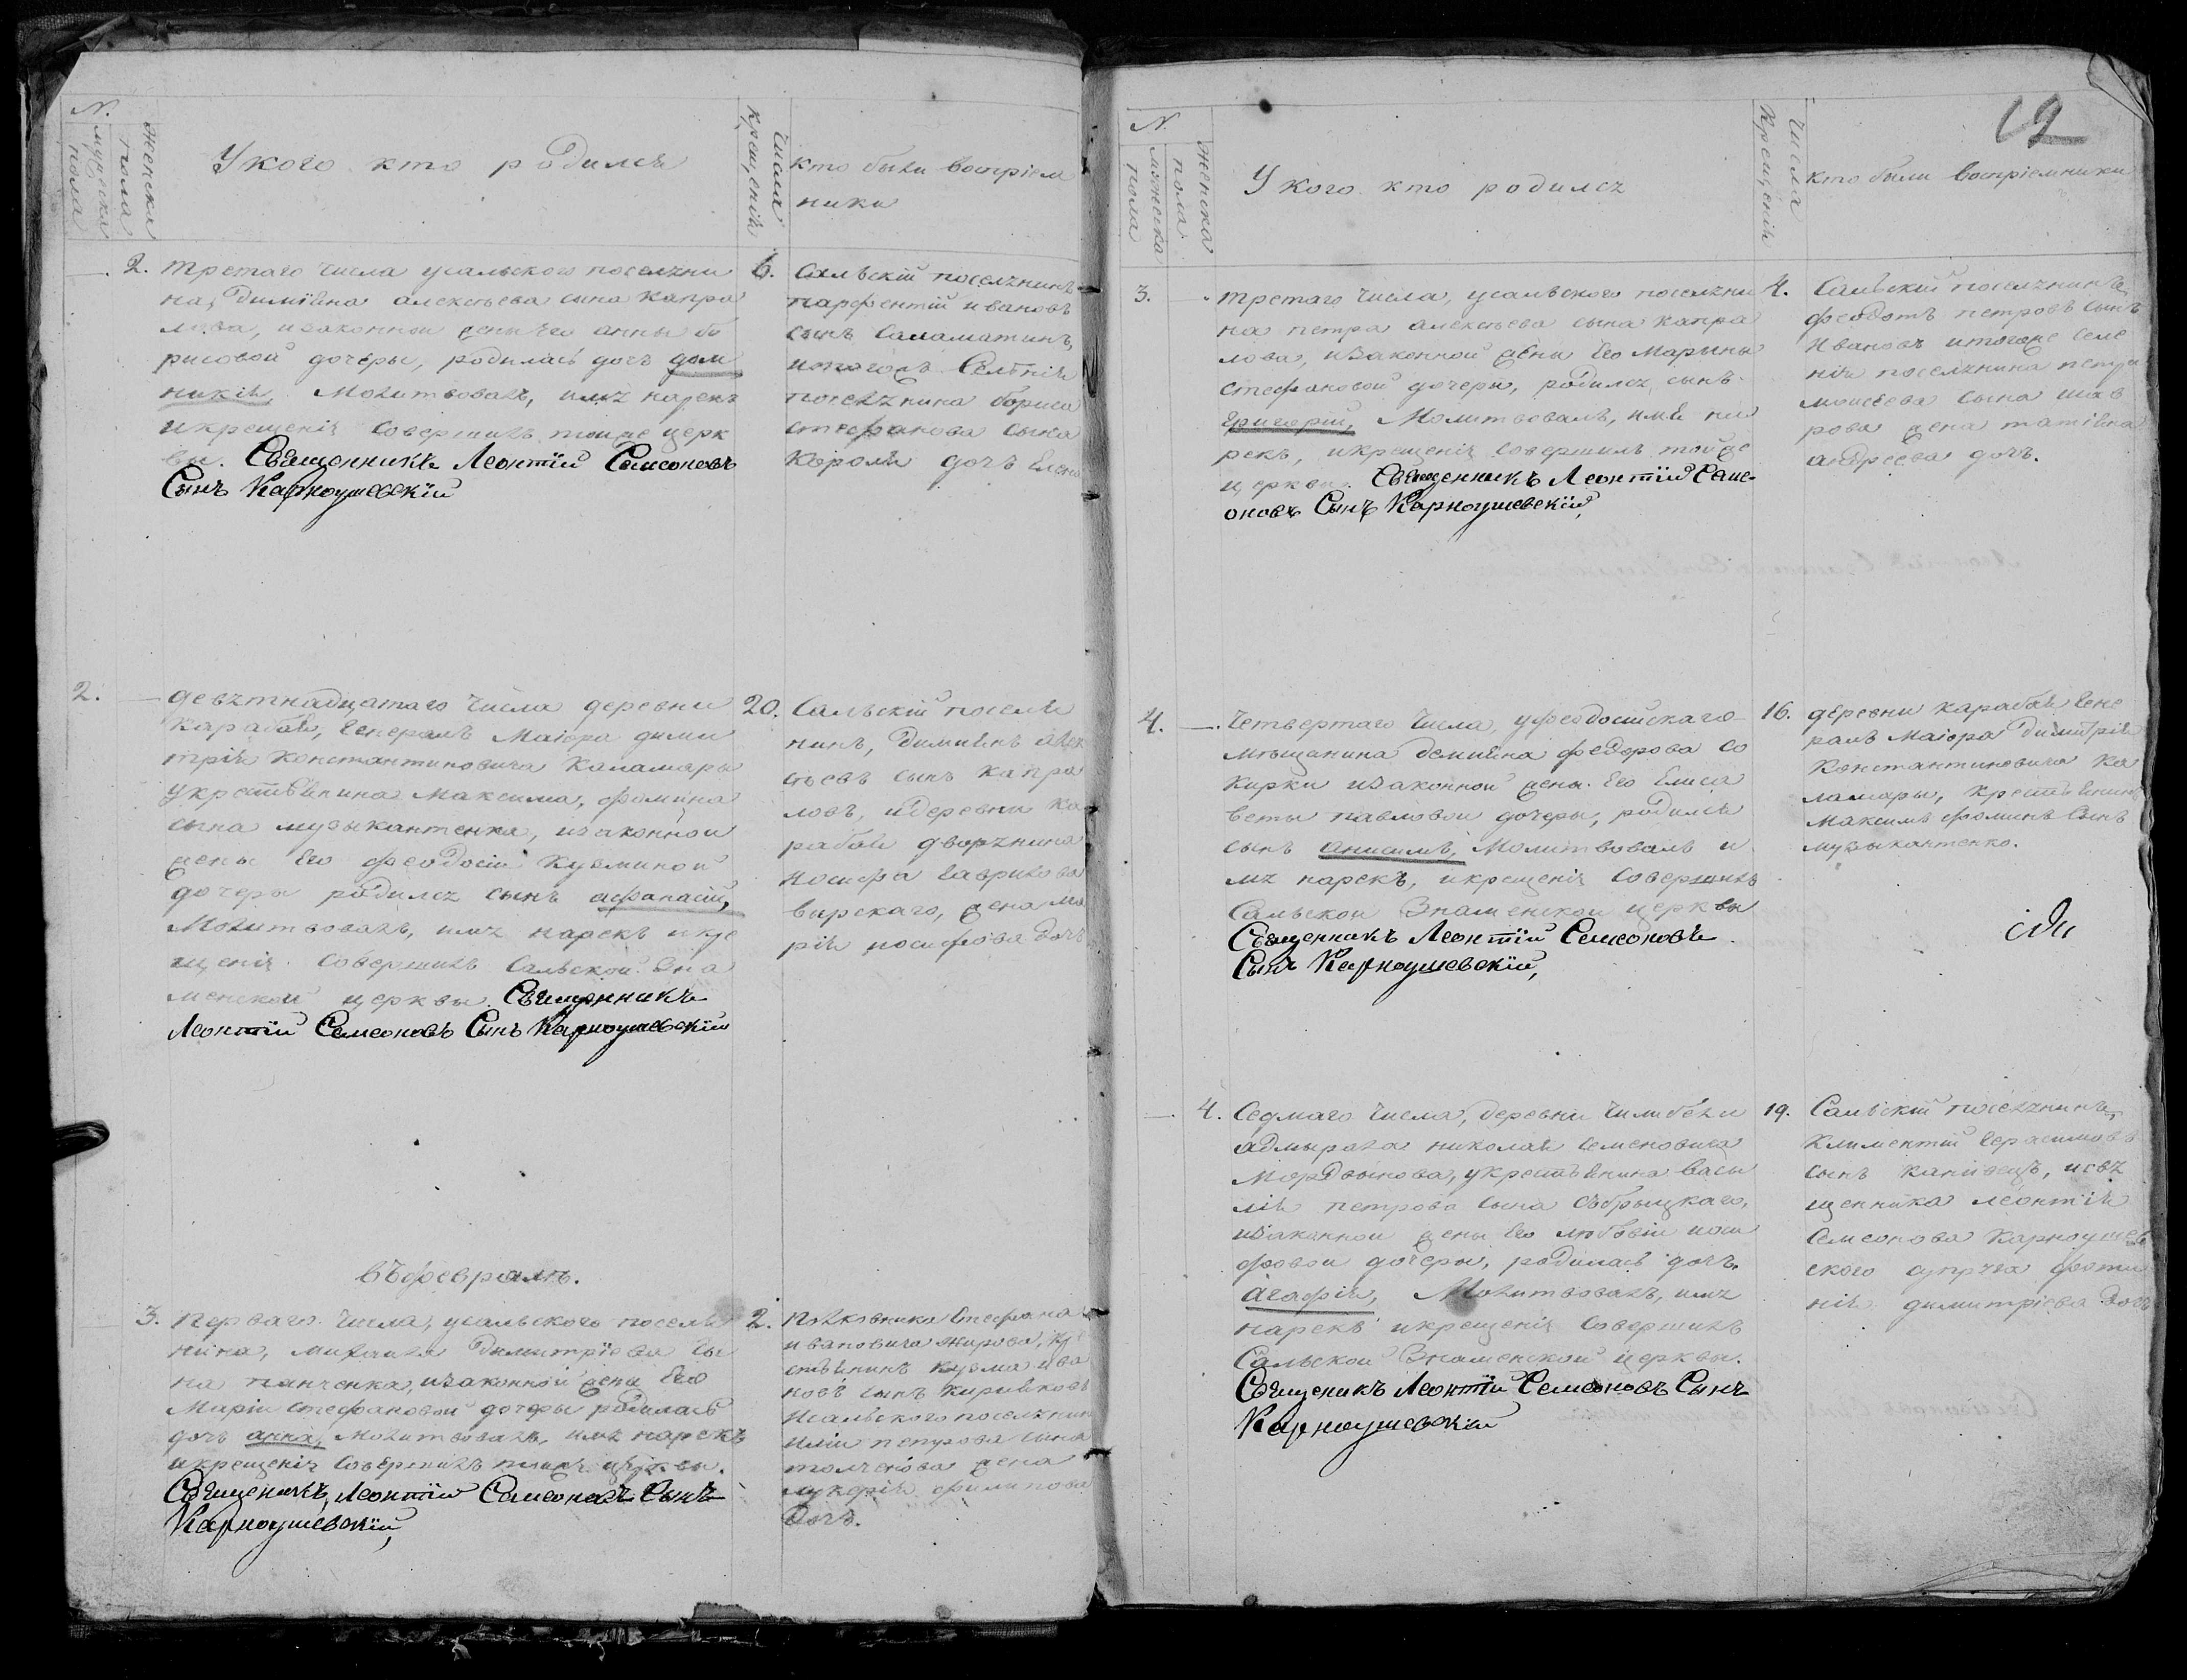 N.
мужеска пола
женска пола
У кого кто родился
числа крещенія
кто были воспріем
ники
2. третаго числа усальского поселяни
на, Дамиѣна алексѣева сына капра
лова, изаконной жены его анны бо
рисовой дочеры, родилась дочь дом
никія, Молитвовалъ, имя нарекъ
икрещеніе совершилъ тойже церк
вы. Священникъ Леонтїй Самсоновъ
Сынъ Карноушевскїй
6. Сальскій поселянинъ
парфентій ивановъ
сынъ Саламатинъ,
итогожъ Селѣнія
поселянина бориса
стефанова сына
Короля дочь Елена
2. девятнадцатаго числа деревни
Карабай, Генералъ Маіора дими
трія Константиновича Каламары
укрестьянина Максима, фомина
сына музыкантенка, изаконной
жены его феодосіи Кузминой
дочеры родился сынъ афанасій,
Молитвовалъ, имя нарекъ икре
щеніе совершилъ Сальской Зна
менской церквы. Священникъ
Леонтїй Самсоновъ Сынъ Карноушевскїй
20. Сальскій поселя
нинъ, Дамиѣнъ алек
сѣевъ сынъ капра
ловъ, идеревни ка
рабай дворянина
иосифа гаврилова
вырскаго, жена ма
рія иосифова дочь
въфевралѣ.
3. перваго числа, усальского поселя
нина, михаила Димитріева сы
на панченка, изаконной жены его
Маріи стефановой дочеры родилась
дочь анна, Молитвовалъ, имя нарекъ
икрещеніе совершилъ тояже церквы.
Священикъ, Леонтїй Самсоновъ Сынъ
Карноушевскїй,
2. полковника Стефана
ивановича Жирова, кре
стьянинъ кузма ива
новъ сынъ кирияковъ
исальского поселянин
иліи петрова сына
толченова жена
гликерія филипова
дочь.
12
N.
мужеска пола
женска пола
У кого кто родился
Числа Крещеніи
кто были воспріемники
3. третаго числа, усальского поселяни
на петра алексѣева сына капра
лова, изаконной жены его Марины
стефановой дочеры, родился сынъ
григорій, Молитвовалъ, имя на
рекъ, икрещеніе совершилъ тойже
церквы. Священникъ Леонтїй Самс-
оновъ Сынъ Карноушевскїй,
4. Сальскій поселянинъ,
феодотъ петровъ сынъ
Ивановъ итогоже селе
нія поселянина петра
моисеева сына шав
рова жена татіяна
андреева дочь.
4. Четвертаго числа, уфеодосійскаго
мѣщанина демияна федорова со
кирки изаконной жены его Елиса
веты павловой дочеры, родился
сынъ анисимъ, Молитвовалъ и
мя нарекъ, икрещеніе совершилъ
Сальской Знаменской церквы
Священникъ Леонтїй Самсоновъ
Сынъ Карноушевскїй,
16. деревни карабай Гене
ралъ Маіора Димитрія
Константиновича Ка
ламары, крестьянинъ
Максимъ фоминъ сынъ
музыкантенко.
4. Седмаго числа, деревни
адмырала николая семеновича
Мордвинова, укрестьянина васи
лія петрова сына събрыцкаго,
изаконной жены его любовіи иоси
фовой дочеры, родилась дочь
агафія, Молитвовалъ, имя
нарекъ икрещеніе совершилъ
Сальской Знаменской церквы.
Священикъ Леонтїй Самсоновъ Сынъ
Карноушевскїй
19. Сальскій поселянинъ,
климентій Герасимовъ
сынъ канивецъ, исвя
щенника леонтія
самсонова Карноушев
ского супруга фоти
нія димитріева дочь